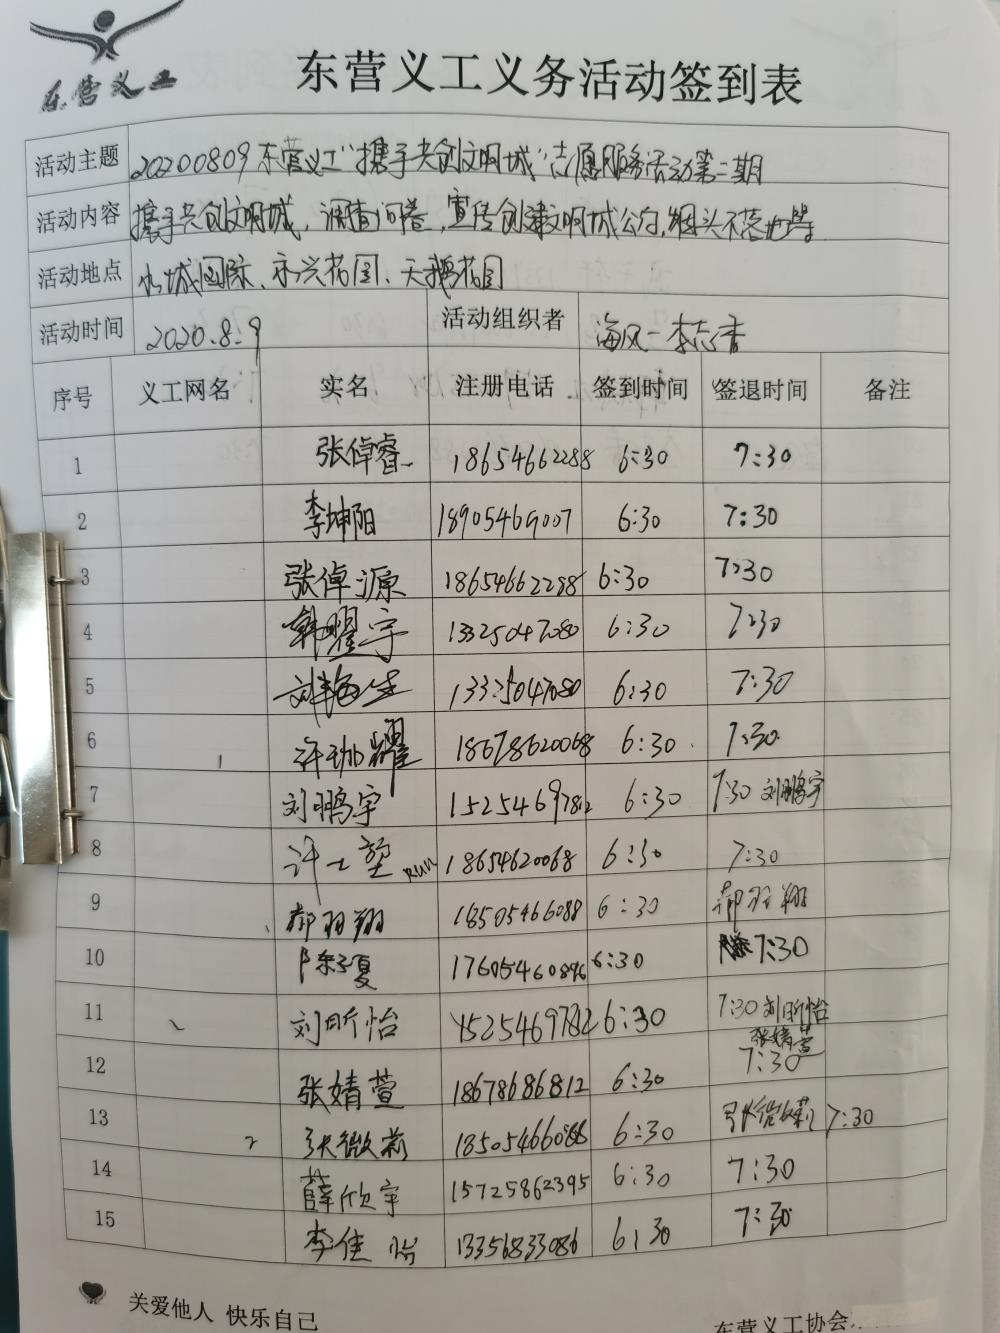 东营义工
东营义工义务活动签到表
活动主题 20200809东营义工"携手共创文明城"志愿服务活动第二期
活动内容 携手共创文明城,调查问卷,宣传创建文明城公约,烟头不落地等
活动地点 水城国际、永兴花园、天鹅花园
活动时间 2020.8.9 活动组织者 海风-李志香
序号 义工网名 实名 注册电话 签到时间 签退时间 备注
1 张倬睿 18654662288 6:30 7:30
2 李坤阳 18905469007 6:30 7:30
3 张倬源 18654662298 6:30 7:30
4 韩曜宇 13325047080 6:30 7:30
5 13325047080 6:30 7:30
6 许珈耀 18678620068 6:30 7:30
7 刘鹏宇 15254697812 6:30 7:30 刘鹏宇
8 许一堃 KUN 18654620068 6:30 7:30
9 郝羽翔 18505466088 6:30 郝羽翔
10 陈子夏 17605460896 6:30 7:30
11 刘昕怡 15254697812 6:30 7:30 刘昕怡
12 张婧萱 18678686812 6:30 张婧萱 7:30
13 张微莉 18505466088 6:30 张微莉 7:30
14 薛欣宇 15725862395 6:30 7:30
15 李佳怡 13356833086 6:30 7:30
关爱他人 快乐自己
东营义工协会